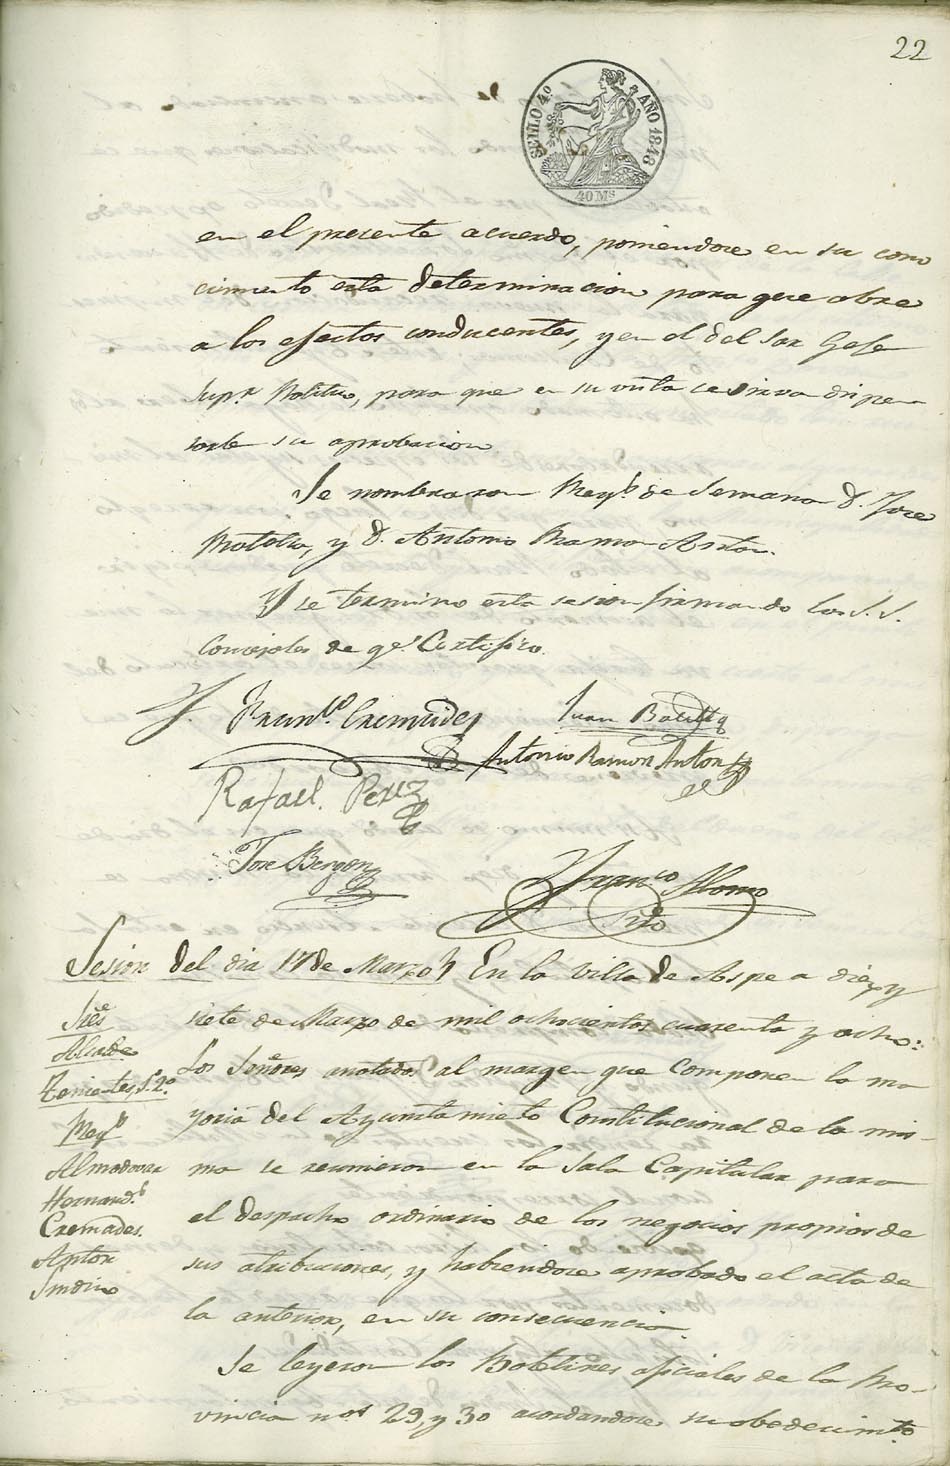 22
SELLO 4º AÑO 1848
40 Ms
en el presente acuerdo, poniendose en su cono
cimiento esta determinacion para que obre
a los efectos conducentes, y en el del Sor Gefe
Supr Politico, para que en su vista se sirva dispen
sarle su aprobacion
Se nombraron Reg.s de Semana D. Jose
y D. Antonio Ramon Anton.
Y se termino esta sesion firmando los S.S.
Concejales de qe Certifico.
Franco. Cremades
Juan Botella
Antonio Ramon Anton
Rafael. Perez
Jose Bergon
Franco Alonso
Srio
Sesion del dia 17 de Marzo
En la Villa de Aspe a diez y
siete de Marzo de mil ochocientos cuarenta y ocho:
Los Señores anotados al margen que componen la ma
yoria del Ayuntamieto Constitucional de la mis-
ma se reunieron en la Sala Capitular para
el despacho ordinario de los negocios propios de
sus atribuciones, y habiendose aprobado el acta de
la anterior, en su consecuencia.
Se leyeron los Boletines oficiales de la Pro-
vincia nos 29, y 30 acordandose su obedecimto
Sres
Alcalde
Tenientes 1. 2º
Regs
Almodovar
Hernands
Cremades.
Anton
Sindico